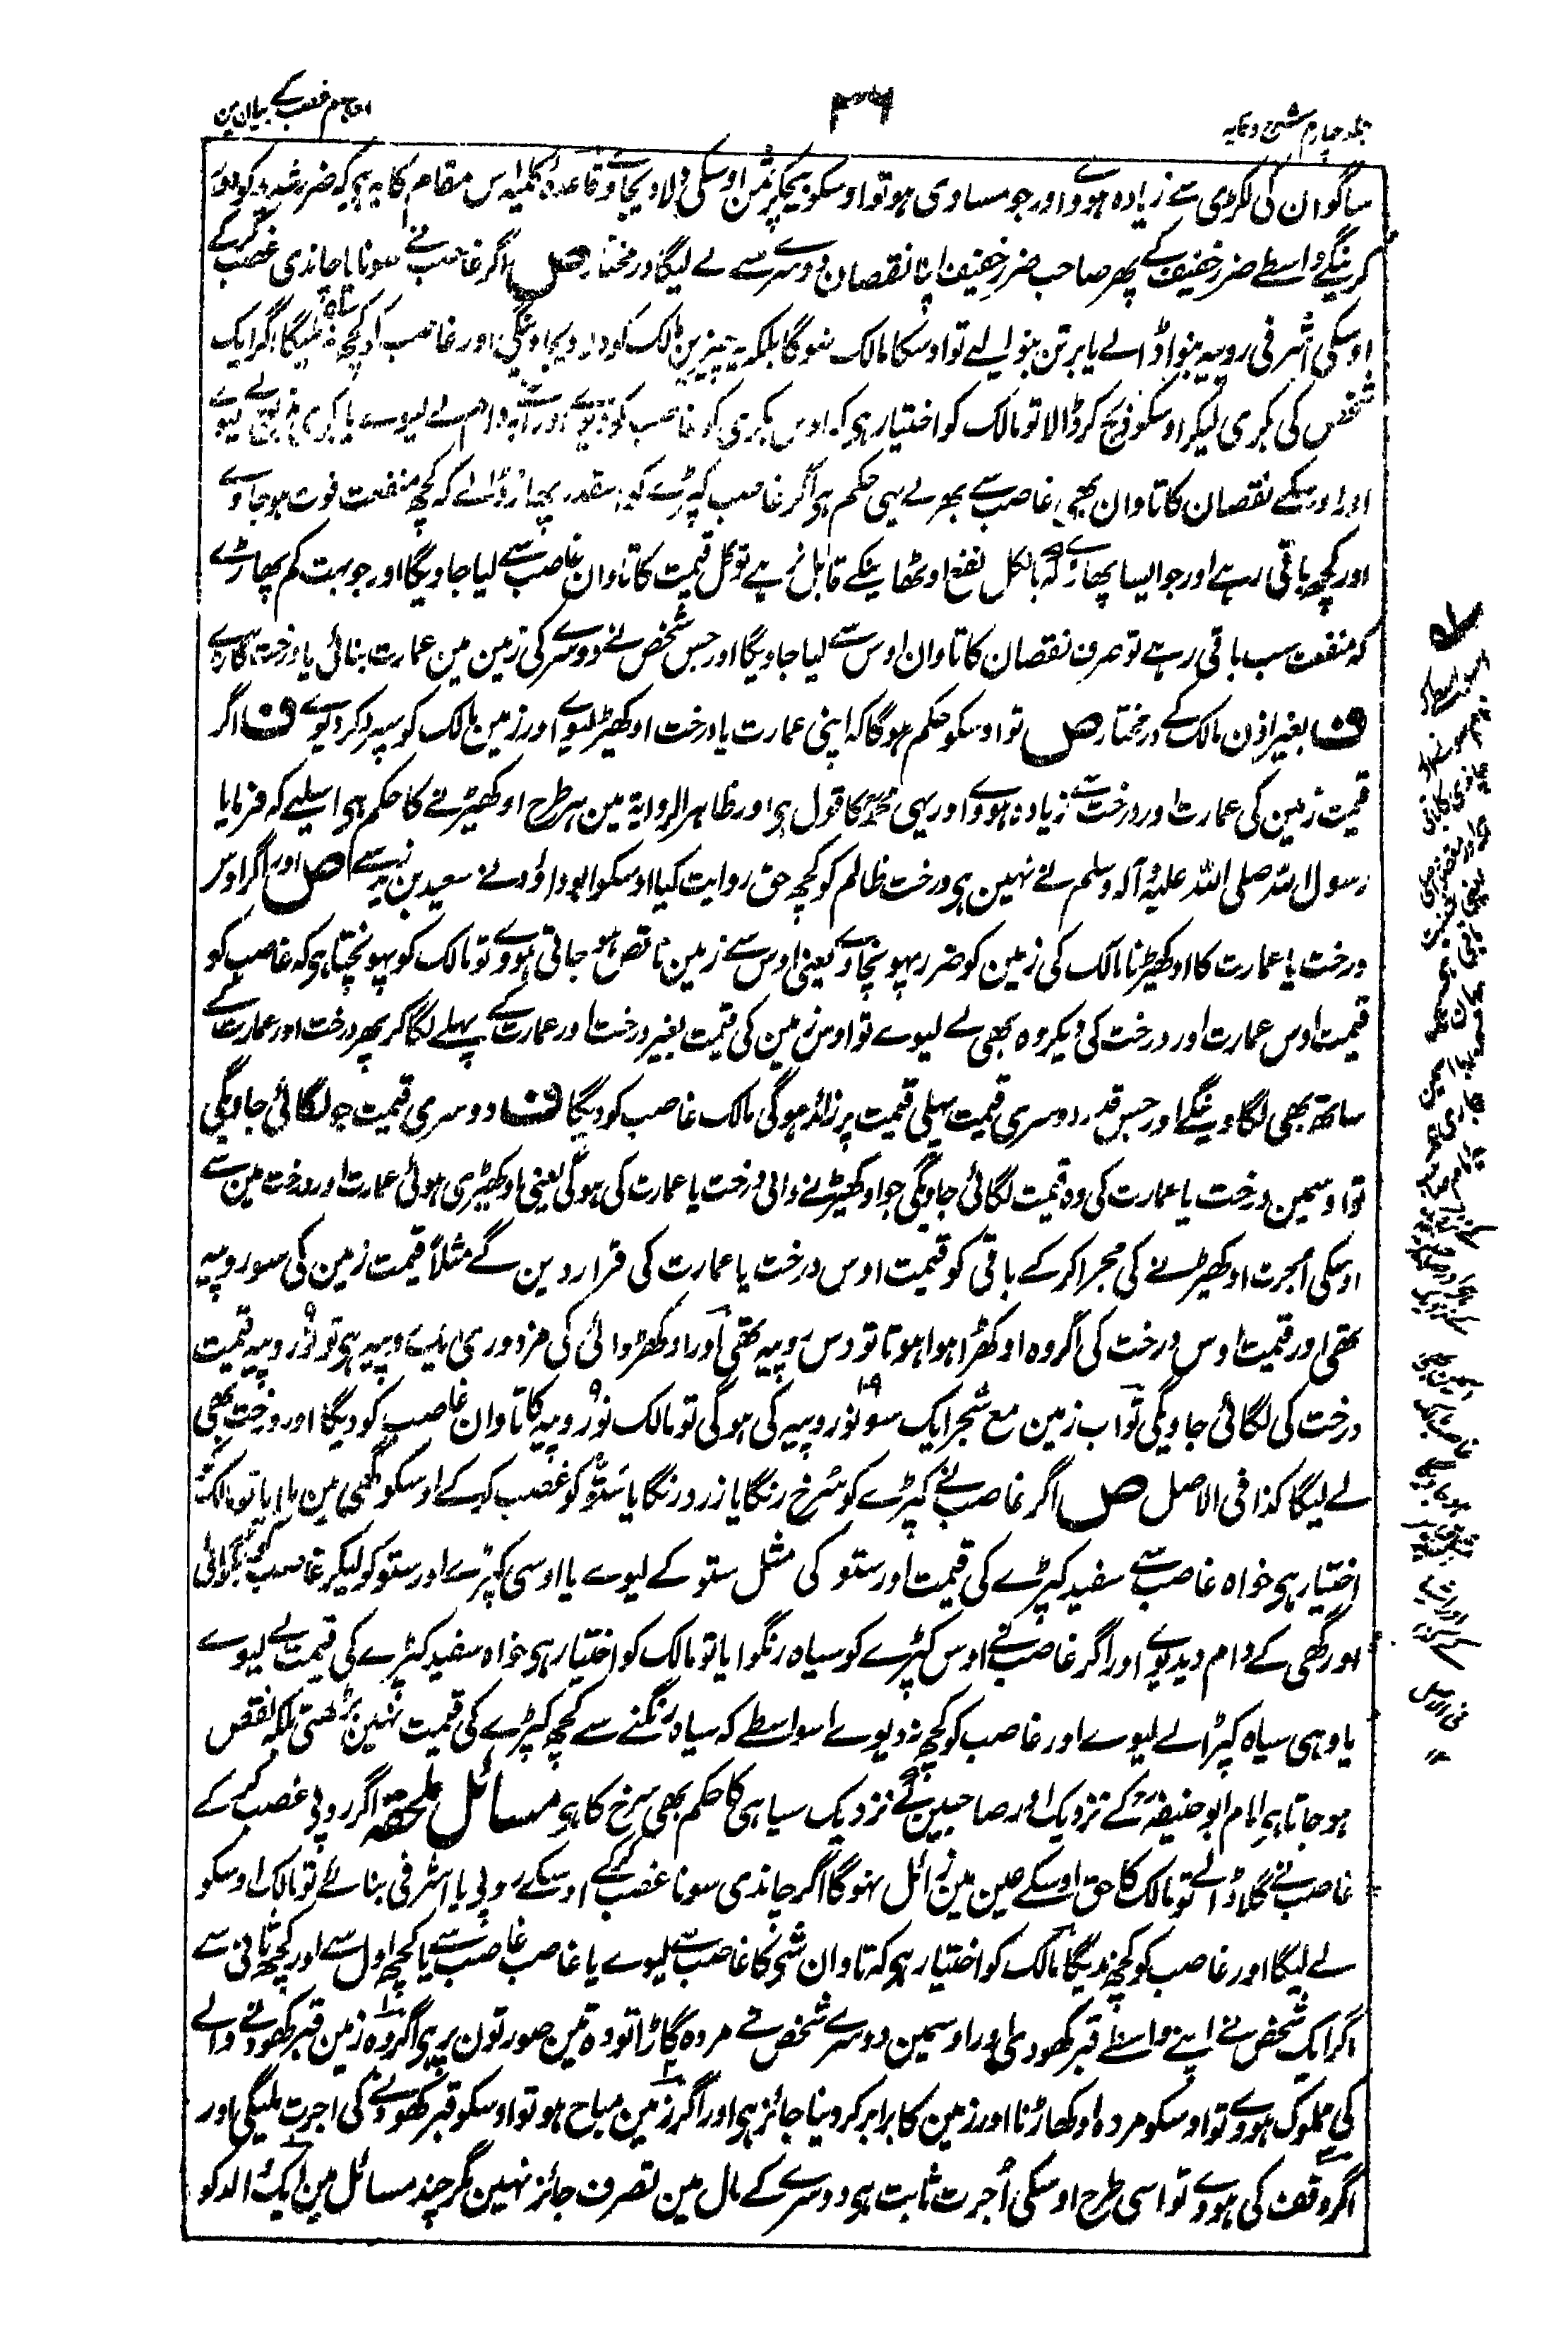 جلد چارم شرح وقایہ
۳۶
اقسام غصب کے بیان مین
ساگوان کی لکڑی سے زیادہ ہووے اور جو مساوی ہو تو اوسکو بیچکر ثمن اوسکی دلاویجاوے قاعدہ کلیہ اس مقام کا یہ ہی کہ ضرر شدید کو دور
کرینگے واسطے ضرر خفیف کے پھر صاحب ضرر خفیف اپنا نقصان دوسرے سے لے لیگا درمختار ص اگر غاصب نے سونا یا چاندی غصب کرکے
اوسکی اشرفی روپیہ بنوا ڈالے یا برتن بنوا لیے تو اوسکا مالک نہوگا بلکہ یہ چیزین مالک کو دیدیجاوینگی اور غاصب کو کچھ نہ ملیگا اگر ایک
شخص کی بکری لیکر اوسکو ذبح کر ڈالا تو مالک کو اختیار ہی کہ اوس بکری کو غاصب کو دیوے اور اپنے دام لے لیوے یا بکری مذبوح لیوے
اور اوسکے نقصان کا تاوان بھی غاصب سے بھرلے یہی حکم ہی اگر غاصب کپڑے کو اسقدر پھاڑ ڈالے کہ کچھ منفعت فوت ہوجاوے
اور کچھ باقی رہے اور جو ایسا پھاڑے کہ بالکل نفع اوٹھانیکے قابل نرہے تو کل قیمت کا تاوان غاصب سے لیا جاویگا اور جو بہت کم پھاڑے
کہ منفعت سب باقی رہے تو صرف نقصان کا تاوان اوس سے لیا جاویگا اور جس شخص نے دوسرے کی زمین مین عمارت بنائی یا درخت گاڑے
ف بغیر اذن مالک کے درمختار ص تو اوسکو حکم ہوگا کہ اپنی عمارت یا درخت اوکھیڑ لیوے اور زمین مالک کو سپرد کردیوے ف اگر
قیمت زمین کی عمارت اور درخت سے زیادہ ہووے اور یہی محمد کا قول ہی اور ظاہر الروایۃ مین ہر طرح اوکھیڑنے کا حکم ہی اسلیے کہ فرمایا
رسول اللہ صلی اللہ علیہ وآلہ وسلم نے نہین ہی درخت ظالم کو کچھ حق روایت کیا اوسکو ابوداؤد نے سعید بن زید سے ص اور اگر اوس
درخت یا عمارت کا اوکھیڑنا مالک کی زمین کو ضرر پہونچاوے یعنی اوس سے زمین ناقص ہو جاتی ہووے تو مالک کو پہونچتا ہی کہ غاصب کو
قیمت اوس عمارت اور درخت کی دیکر وہ بھی لے لیوے تو اوس زمین کی قیمت بغیر درخت اور عمارت کے پہلے لگا کر پھر درخت اور عمارت کے
ساتھ بھی لگاوینگے اور جس قدر دوسری قیمت پہلی قیمت پر زائد ہوگی مالک غاصب کو دیگا ف دوسری قیمت جو لگائی جاویگی
تو اوسمین درخت یا عمارت کی وہ قیمت لگائی جاویگی جو اوکھیڑنے والی درخت یا عمارت کی ہوگی یعنی اوکھیڑی ہوئی عمارت اور درخت مین سے
اوسکی اجرت اوکھیڑنے کی مجرا کرکے باقی کو قیمت اوس درخت یا عمارت کی قرار دین گے مثلاً قیمت زمین کی سو روپیہ
تھی اور قیمت اوس درخت کی اگر وہ اوکھڑا ہوا ہوتا تو دس روپیہ تھی اور اوکھڑوائی کی مزدوری ایک روپیہ ہی تو نو روپیہ قیمت
درخت کی لگائی جاویگی تو اب زمین مع شجر ایک سو نو روپیہ کی ہوگی تو مالک نو روپیہ کا تاوان غاصب کو دیگا اور درخت بھی
لے لیگا کذا فی الاصل ص اگر غاصب نے کپڑے کو سرخ رنگا یا زرد رنگا یا ستو کو غصب کرکے اوسکو گھی مین ملایا تو مالک کو
اختیار ہی خواہ غاصب سے سفید کپڑے کی قیمت اور ستو کی مثل ستو کے لیوے یا اوسی کپڑے اور ستو کو لیکر غاصب کو رنگوائی
اور گھی کے دام دیدیوے اور اگر غاصب نے اوس کپڑے کو سیاہ رنگوایا تو مالک کو اختیار ہی خواہ سفید کپڑے کی قیمت لے لیوے
یا وہی سیاہ کپڑا لے لیوے اور غاصب کو کچھ ندیوے اسواسطے کہ سیاہ رنگنے سے کچھ کپڑے کی قیمت نہین بڑھتی بلکہ نقص
ہو جاتا ہی امام ابوحنیفہ کے نزدیک اور صاحبین کے نزدیک سیاہی کا حکم بھی سرخ کا ہی مسائل ملحقہ اگر روپے غصب کرکے
غاصب نے گلا ڈالے تو مالک کا حق اوسکے عین مین زائل نہوگا اگر چاندی سونا غصب کرکے اوسکے روپے یا اشرفی بنائے تو مالک اوسکو
لے لیگا اور غاصب کو کچھ ندیگا مالک کو اختیار ہی کہ تاوان شی کا غاصب سے لیوے یا غاصب غاصب سے یا کچھ اول سے اور کچھ ثانی سے
اگر ایک شخص نے اپنے واسطے قبر کھودی اور اوسمین دوسرے شخص نے مردہ گاڑا تو وہ تین صورتون پر ہی اگر وہ زمین قبر کھودنے والے
کی مملوک ہووے تو اوسکو مردہ اوکھاڑنا اور زمین کا برابر کردینا جائز ہی اور اگر زمین مباح ہو تو اوسکو قبر کھودنے کی اجرت ملیگی اور
اگر وقف کی ہووے تو اسی طرح اوسکی اجرت ثابت ہی دوسرے کے مال مین تصرف جائز نہین مگر چند مسائل مین ایک والد کو